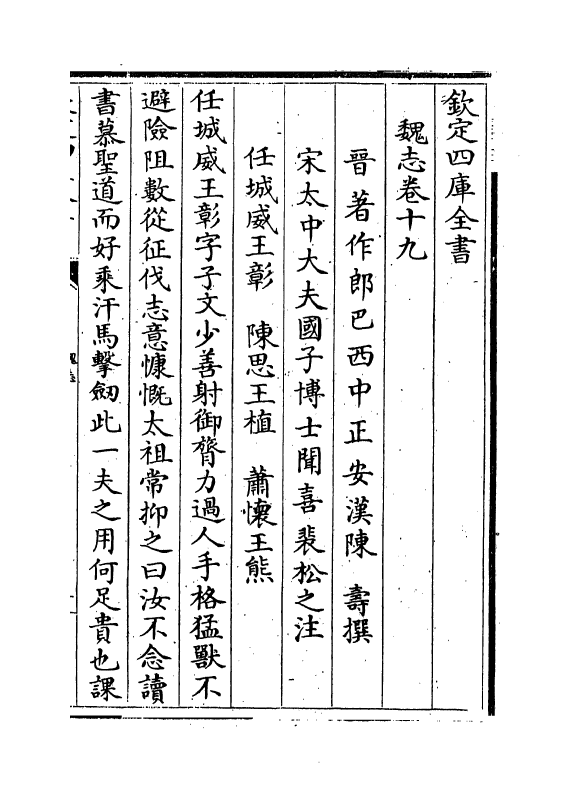 欽定四庫全書
魏志卷十九
晉著作郎巴西中正安漢陳壽撰
宋太中大夫國子博士聞喜裴松之注
任城威王彰 陳思王植 蕭懷王熊
任城威王彰字子文少善射御膂力過人手格猛獸不
避險阻數從征伐志意慷慨太祖常抑之曰汝不念讀
書慕聖道而好乘汗馬擊劒此一夫之用何足貴也課